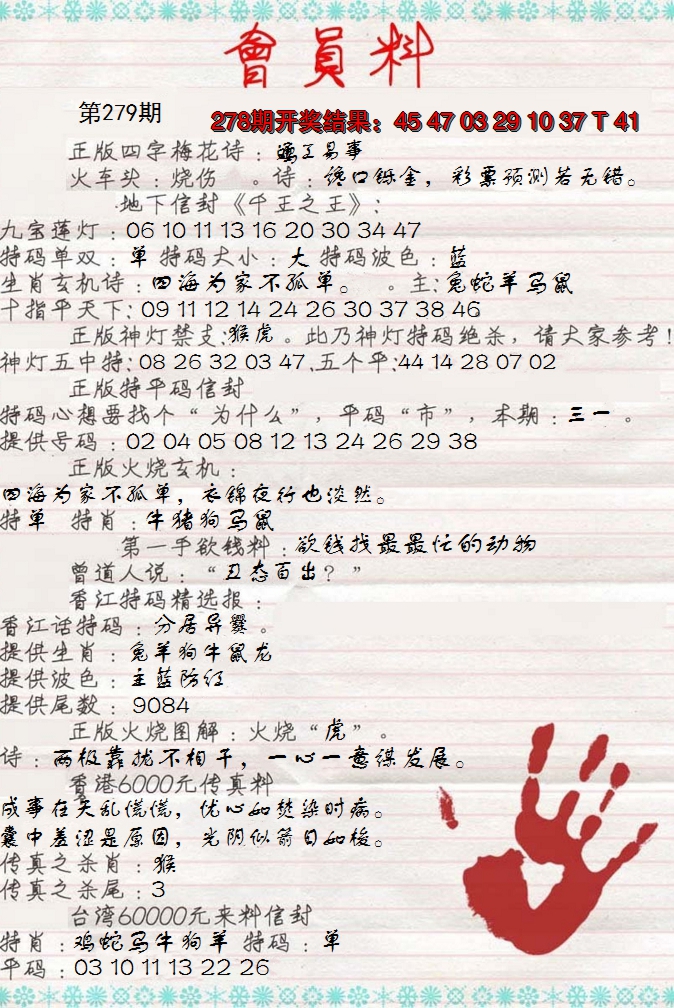 會員料
第279期
278期开奖结果：45 47 03 29 10 37 T 41
正版四字梅花诗：通工易事
火车头：烧伤 。诗：馋口铄金，彩票预测若无错。
地下信封《千王之王》：
九宝莲灯：06 10 11 13 16 20 30 34 47
特码单双：单 特码大小：大 特码波色：蓝
生肖玄机诗：四海为家不孤单。 。主：兔蛇羊马鼠
十指平天下：09 11 12 14 24 26 30 37 38 46
正版神灯禁支：猴虎。此乃神灯特码绝杀，请大家参考！
神灯五中特：08 26 32 03 47.五个平：44 14 28 07 02
正版特平码信封
特码心想要找个“为什么”，平码“市”，本期：三一。
提供号码：02 04 05 08 12 13 24 26 29 38
正版火烧玄机：
四海为家不孤单，衣锦夜行也淡然。
特单 特肖：牛猪狗马鼠
第一手欲钱料：欲钱找最最忙的动物
曾道人说：“丑态百出？”
香江特码精选报：
香江话特码：分居异爨。
提供生肖：兔羊狗牛鼠龙
提供波色：主蓝防红
提供尾数：9084
正版火烧图解：火烧“虎”。
诗：两极靠拢不相干，一心一意谋发展。
香港6000元传真料
成事在天乱慌慌，忧心如焚染时病。
囊中羞涩是原因，光阴似箭日如梭。
传真之杀肖：猴
传真之杀尾：3
台湾60000元来料信封
特肖：鸡蛇马牛狗羊 特码：单
平码：03 10 11 13 22 26